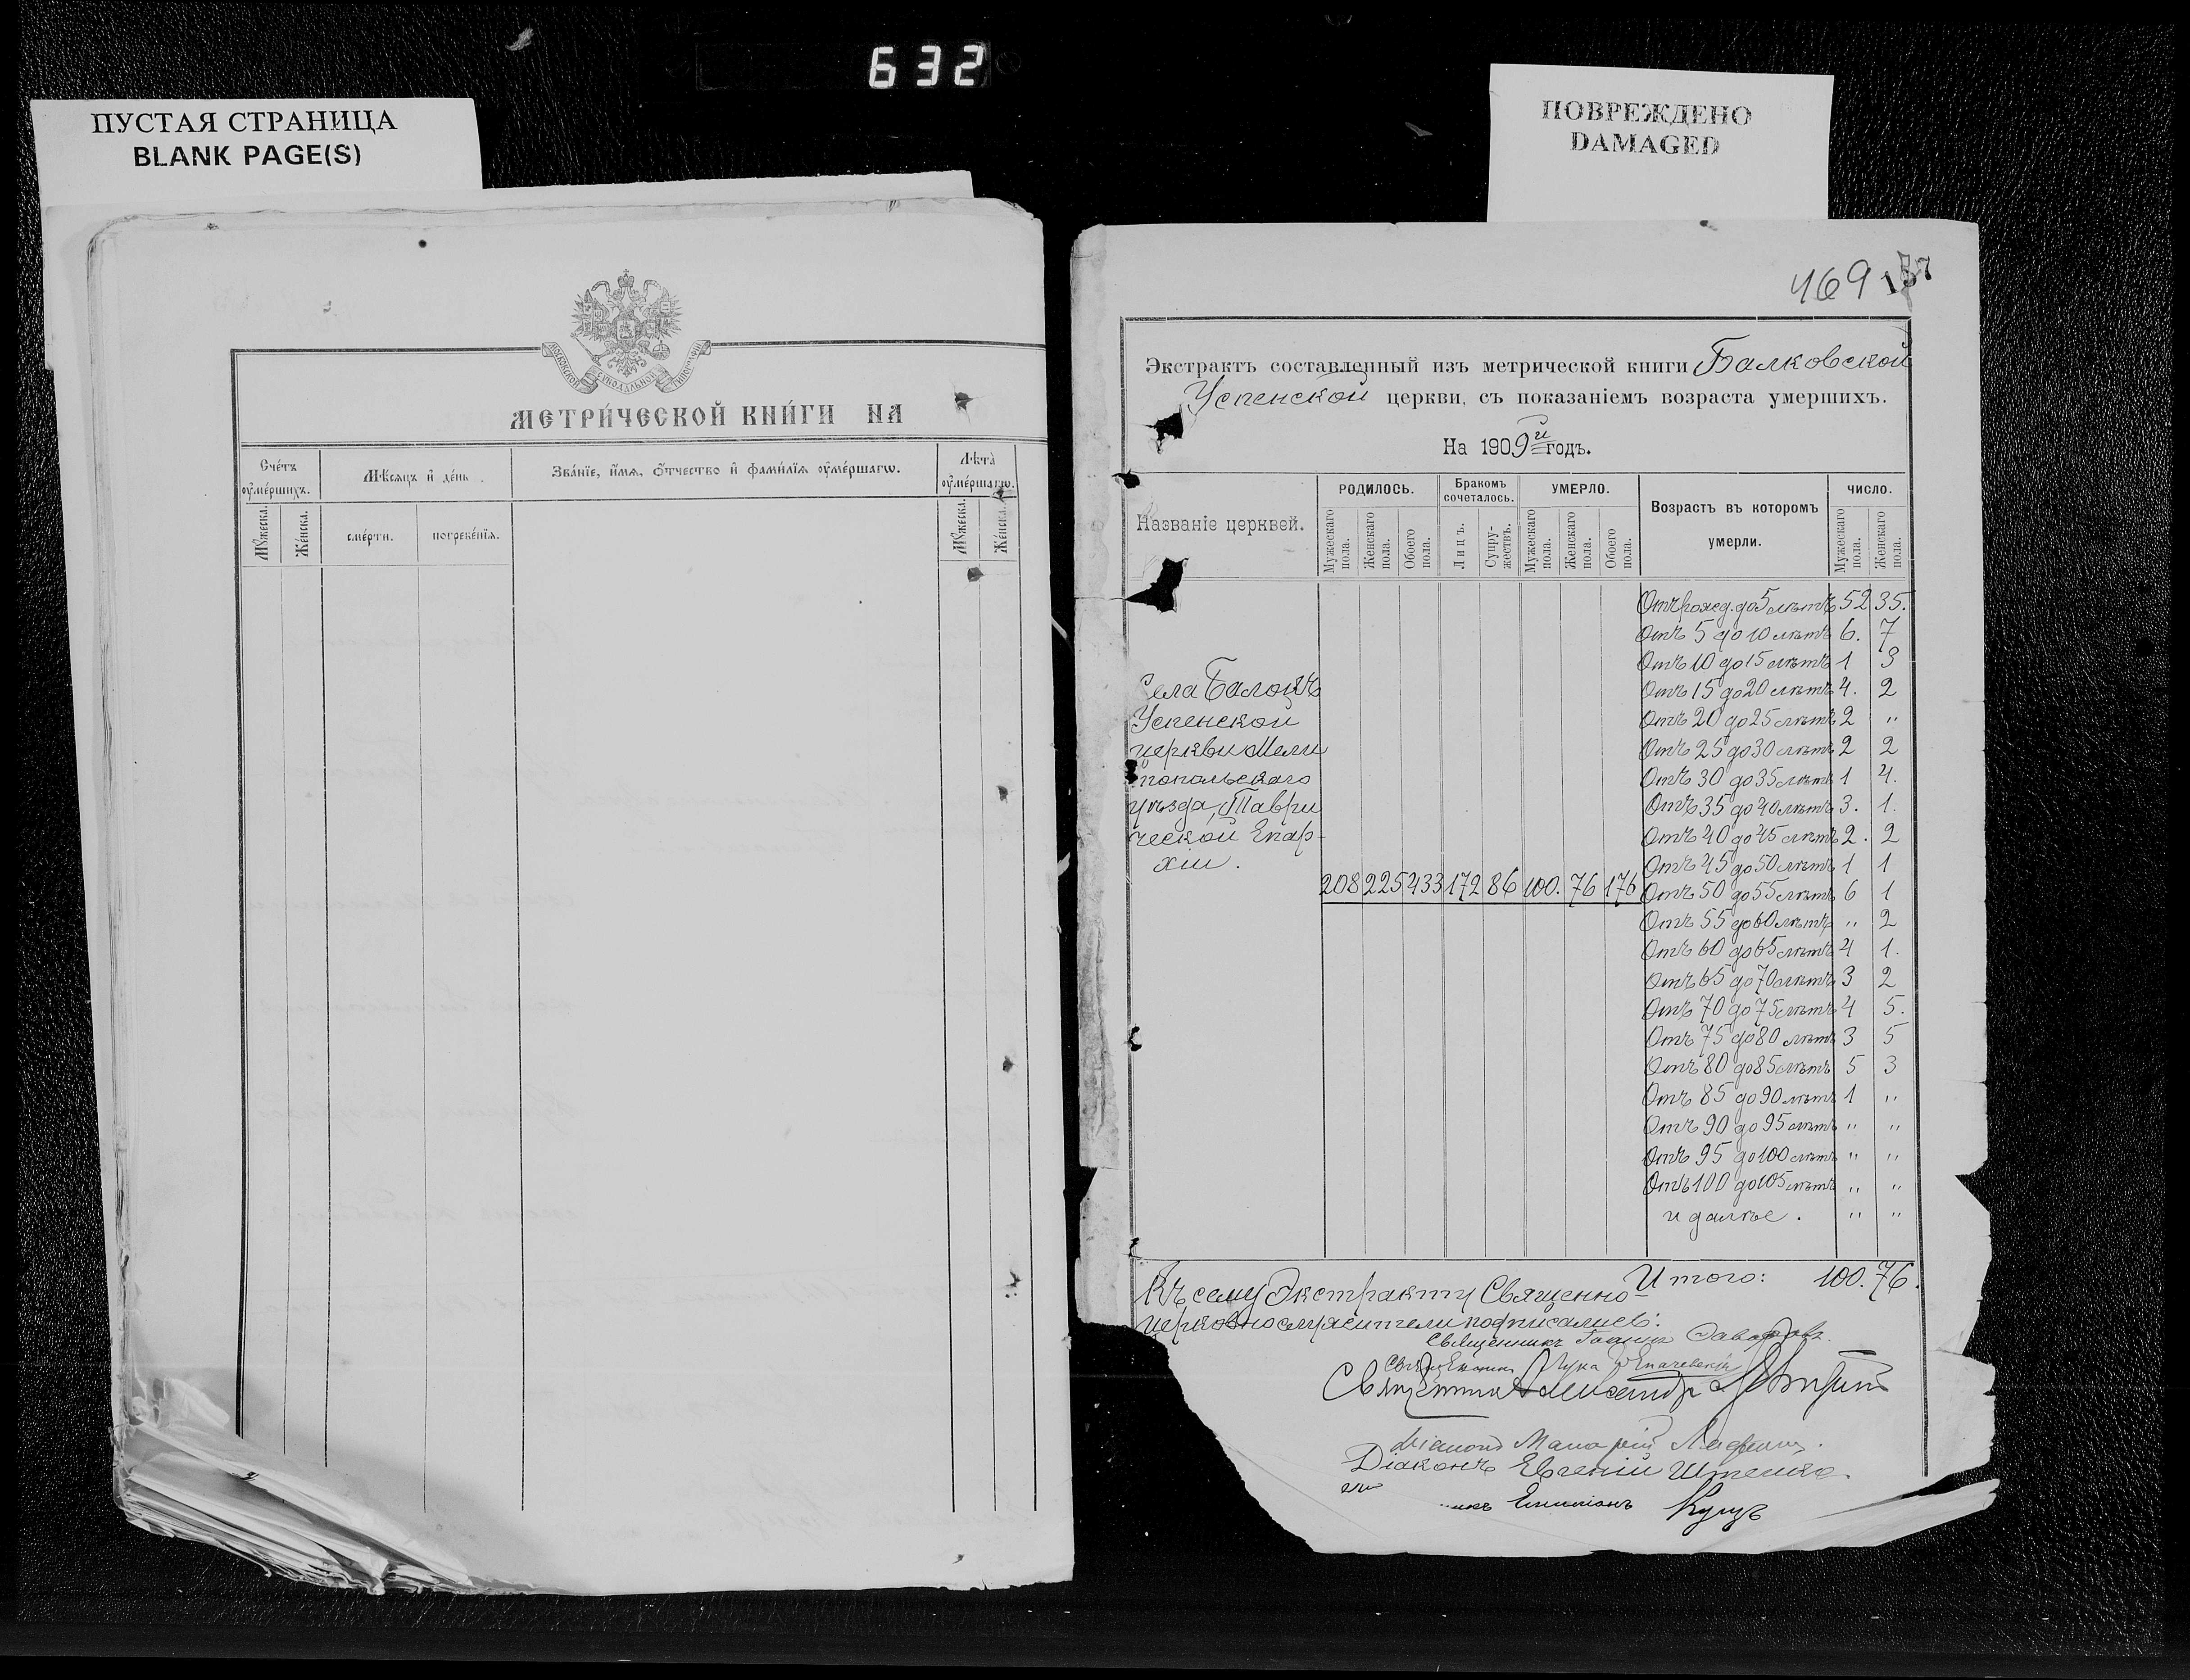 632
ПУСТАЯ СТРАНИЦА
BLANK PAGE(S)
ПОВРЕЖДЕНО
DAMAGED
МОСКОВСКОЙ СѴНОДАЛЬНОЙ ТИПОГРАФІИ
МЕТРИ́ЧЕСКОЙ КНИ́ГИ НА
Сче́тъ ѹ҆ме́ршихъ.
Мѣ́сяцъ и҆ де́нь
Зва́нїе, и҆́мѧ, ѻ҆́тчество и҆ фами́лїѧ ѹ҆ме́ршагѡ.
Лѣта̀ ѹ҆ме́ршагѡ.
Мѹ́жеска.
Же́нска.
сме́рти.
погребе́нїѧ.
Мѹ́жеска.
Же́нска.
469 157
Экстрактъ составленный изъ метрической книги Балковской
Успенской церкви, съ показаніемъ возраста умершихъ.
На 1909й годъ.
Названіе церквей.
РОДИЛОСЬ.
Бракомъ сочеталось.
УМЕРЛО.
Возрастъ въ которомъ умерли.
ЧИСЛО.
Мужескаго пола.
Женскаго пола.
Обоего пола.
Лицъ.
Супружествъ.
Мужескаго пола.
Женскаго пола.
Обоего пола.
Мужескаго пола.
Женскаго пола.
Села Балокъ
Успенской
церкви Мели
топольскаго
уѣзда, Таври
ческой Епар-
хіи.
208 225 433 172 86 100. 76 176
Отъ рожд. до 5 лѣтъ 52 35.
Отъ 5 до 10 лѣтъ 6. 7
Отъ 10 до 15 лѣтъ 1 3
Отъ 15 до 20 лѣтъ 4. 2
Отъ 20 до 25 лѣтъ 2 "
Отъ 25 до 30 лѣтъ 2 2
Отъ 30 до 35 лѣтъ 1 4.
Отъ 35 до 40 лѣтъ 3. 1.
Отъ 40 до 45 лѣтъ 2. 2
Отъ 45 до 50 лѣтъ 1 1
Отъ 50 до 55 лѣтъ 6 1
Отъ 55 до 60 лѣтъ " 2
Отъ 60 до 65 лѣтъ 4 1.
Отъ 65 до 70 лѣтъ 3 2
Отъ 70 до 75 лѣтъ 4 5.
Отъ 75 до 80 лѣтъ 3 5
Отъ 80 до 85 лѣтъ 5 3
Отъ 85 до 90 лѣтъ 1 "
Отъ 90 до 95 лѣтъ " "
Отъ 95 до 100 лѣтъ " "
Отъ 100 до 105 лѣтъ " "
и далѣе. " "
Итого: 100. 76.
Къ сему Экстракту Священно-
церковнослужители подписались:
Священникъ Іоаннъ
Священникъ Лука
Священникъ Александръ
Діаконъ Макарій
Діаконъ Евгеній Штенко.